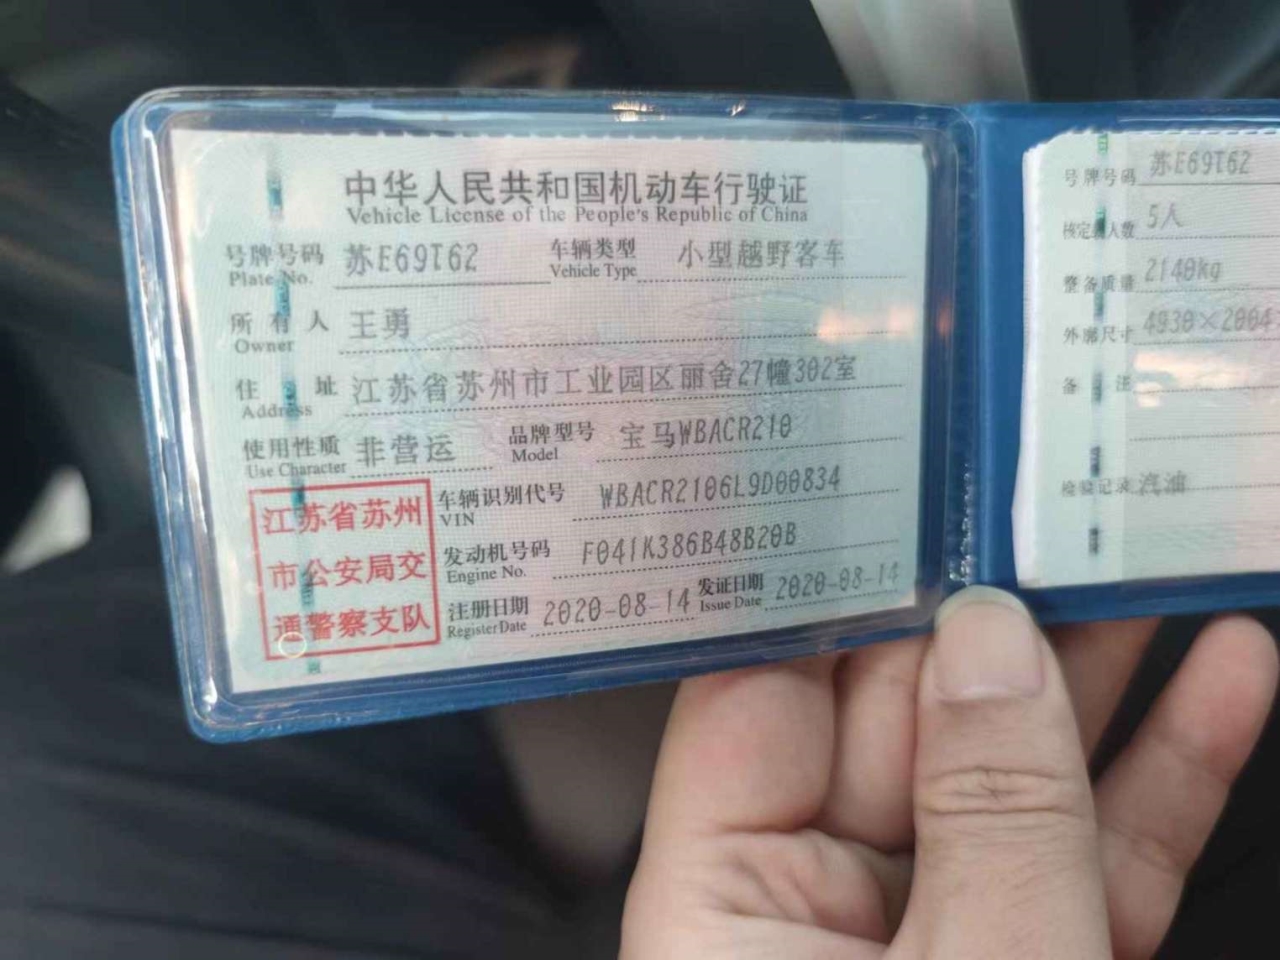 中华人民共和国机动车行驶证
Vehicle License of the People's Republic of China
号牌号码 苏E69T62 车辆类型 小型越野客车
Plate No. Vehicle Type
所有人 王勇
Owner
住址 江苏省苏州市工业园区丽舍27幢302室
Address
使用性质 非营运 品牌型号 宝马WBACR210
Use Character Model
江苏省苏州
市公安局交
通警察支队
车辆识别代号 WBACR2106L9D00834
VIN
发动机号码 F041K386B48B20B
Engine No.
注册日期 2020-08-14 发证日期 2020-08-14
Register Date Issue Date
号牌号码 苏E69T62
核定载人数 5人
整备质量 2140kg
外廓尺寸 4930×2004
备注
检验记录 汽油